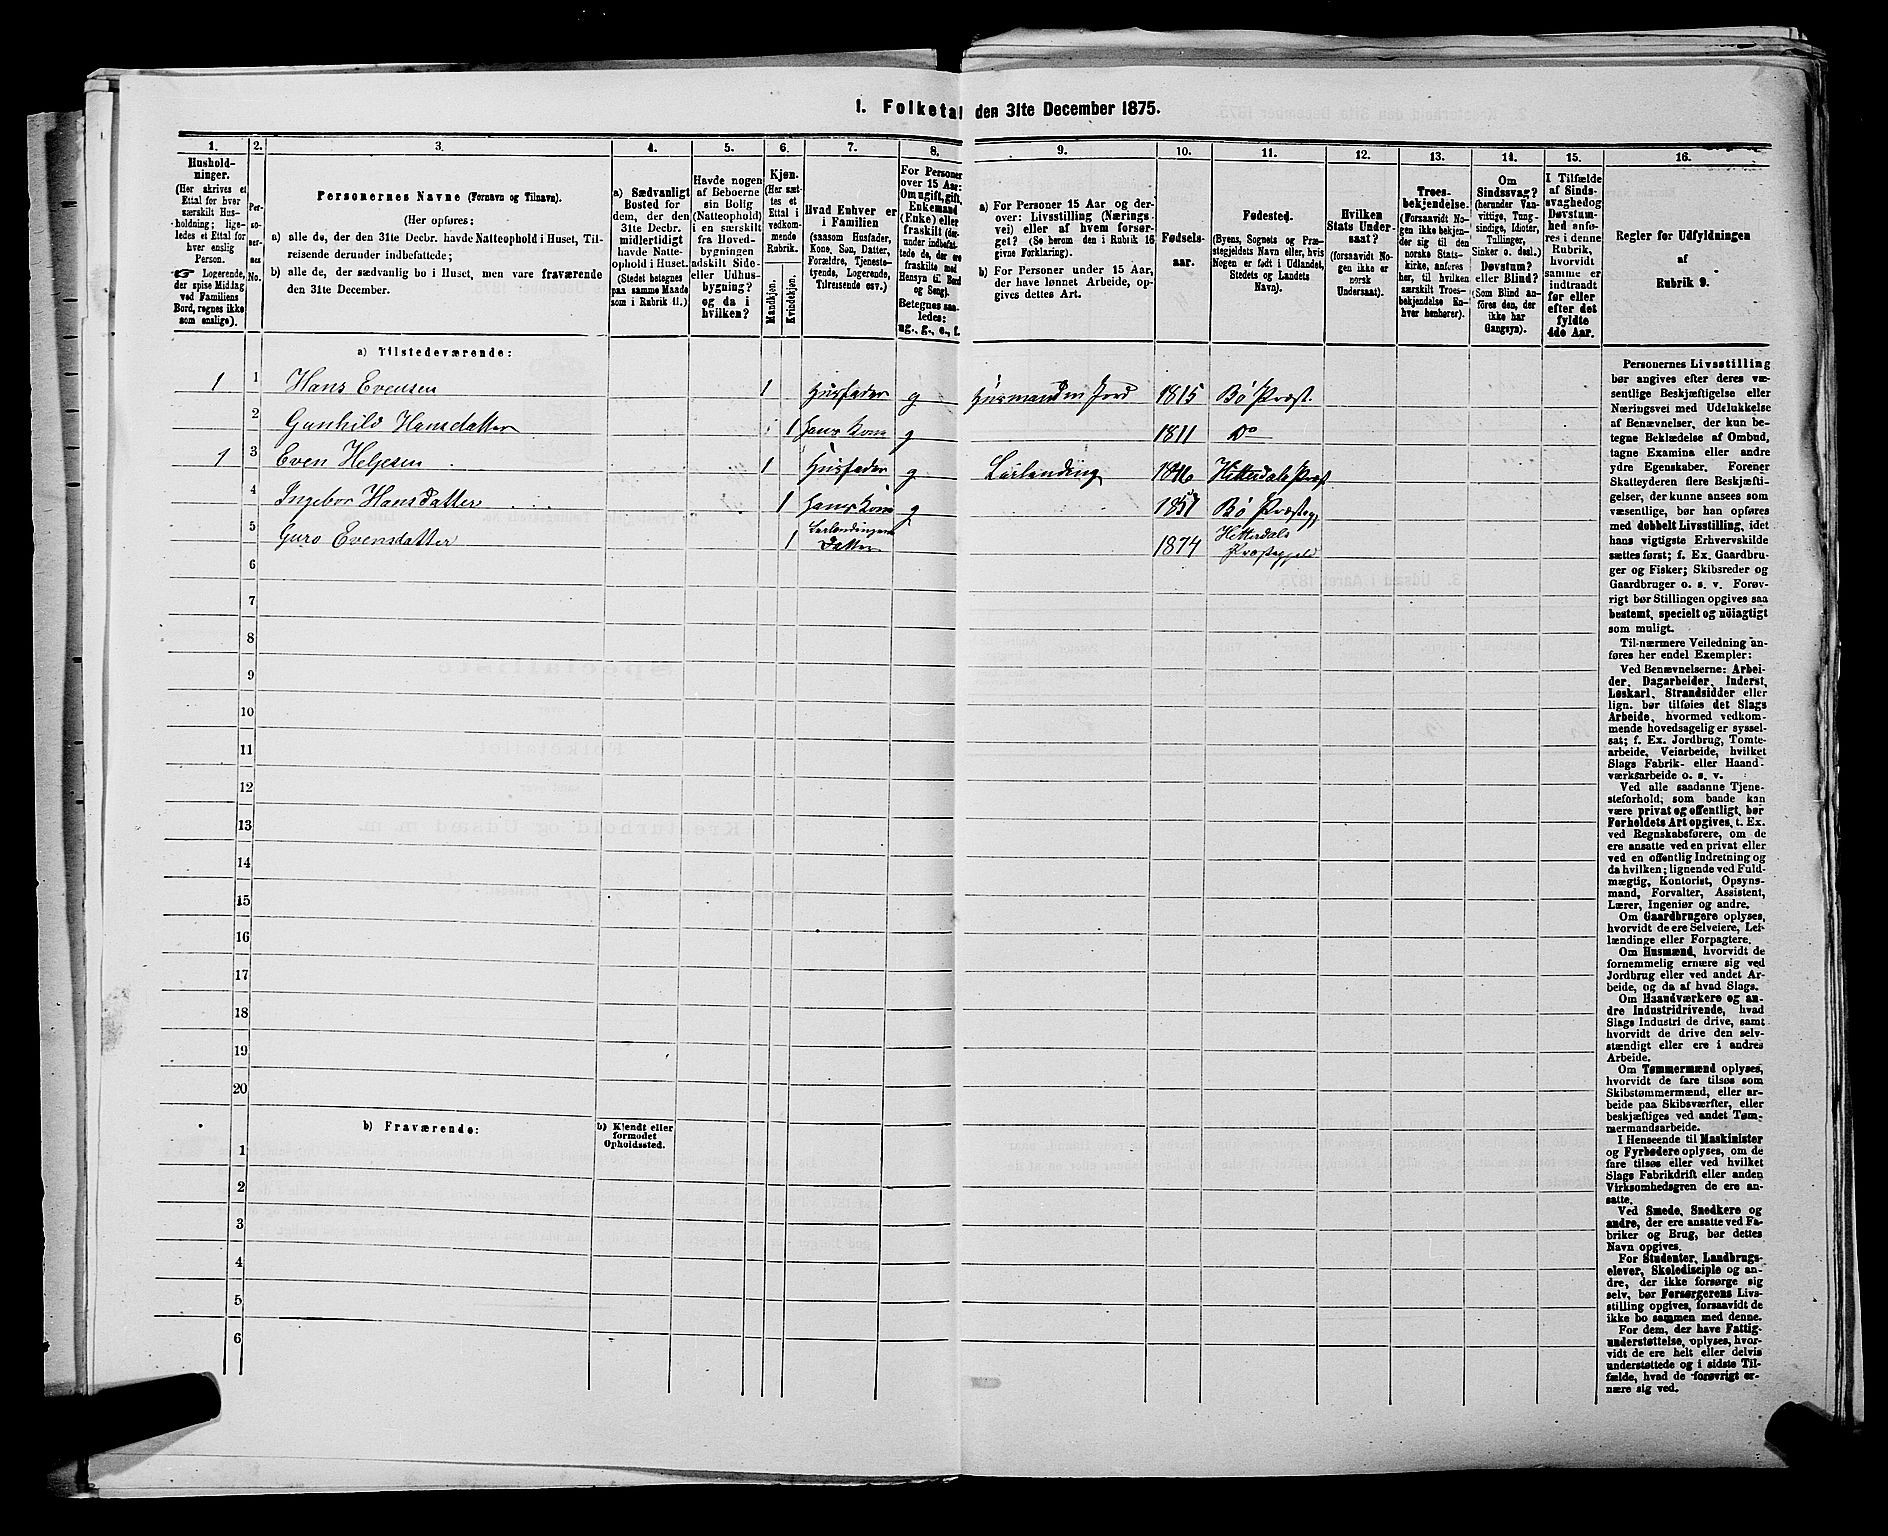 1. Folketal den 31te December 1875.
1.
Hushold-
ninger.
(Her skrives et
Ettal for hver
særskilt Hus-
holdning; lige-
ledes et Ettal for
hver enslig
Person.
☞ Logerende,
der spise Middag
ved Familiens
Bord, regnes ikke
som enslige).
2.
Per-
so-
ner-
nes
No.
3.
Personernes Navne (Fornavn og Tilnavn).
(Her opføres:
a) alle de, der den 31te Decbr. havde Natteophold i Huset, Til-
reisende derunder indbefattede;
b) alle de, der sædvanlig bo i Huset, men vare fraværende
den 31te December.
4.
a) Sædvanligt
Bosted for
dem, der den
31te Decbr.
midlertidigt
havde Natte-
ophold i Huset.
(Stedet betegnes
paa samme Maade
som i Rubrik 11.)
5.
Havde nogen
af Beboerne
sin Bolig
(Natteophold)
i en særskilt
fra Hoved-
bygningen
adskilt Side-
eller Udhus-
bygning?
og da i
hvilken?
6.
Kjøn.
(Her sæt-
tes et
Ettal i
vedkom-
mende
Rubrik.
Mandkjøn.
Kvindekjøn.
7.
Hvad Enhver er
i Familien
(saasom Husfader,
Kone, Søn, Datter,
Forældre, Tjeneste-
tyende, Logerende,
Tilreisende osv.)
8.
For Personer
over 15 Aar:
Om ugift, gift,
Enkemand
(Enke) eller
fraskilt (der-
under indbefat-
tede de, der ere
fraskilte med
Hensyn til Bord
og Seng).
Betegnes saa-
ledes:
ug., g., e., f.
9.
a) For Personer 15 Aar og der-
over: Livsstilling (Nærings-
vei) eller af hvem forsør-
get? (Se herom den i Rubrik 16
givne Forklaring).
b) For Personer under 15 Aar,
der have lønnet Arbeide, op-
gives dettes Art.
10.
Fødsels-
aar.
11.
Fødested.
(Byens, Sognets og Præ-
stegjeldets Navn eller, hvis
Nogen er født i Udlandet,
Stedets og Landets
Navn).
12.
Hvilken
Stats Under-
saat?
(forsaavidt No-
gen ikke er
norsk
Undersaat).
13.
Troes-
bekjendelse.
(Forsaavidt No-
gen ikke bekjen-
der sig til den
norske Stats-
kirke, anføres
her, til hvilken
særskilt Troes-
bekjendelse En-
hver henhører).
14.
Om
Sindssvag?
(herunder Van-
vittige, Tung-
sindige, Idioter,
Tullinger,
Sinker o. desl.)
Døvstum?
eller Blind?
(Som Blind an-
føres den, der
ikke har
Gangsyn).
15.
I Tilfælde
af Sinds-
svaghed og
Døvstum-
hed anfø-
res i denne
Rubrik,
hvorvidt
samme er
indtraadt
før eller
efter det
fyldte
4de Aar.
16.
Regler for Udfyldningen
af
Rubrik 9.
a) Tilstedeværende:
1 1 Hans Evensen 1 Husfader g Husmand m Jord 1815 Bø Præst.
2 Gunhild Hansdatter 1 hans Kone g 1811 Do
1 3 Even Heljesen 1 Husfader g Leilending 1846 Hitterdals Præst
4 Ingebor Hansdatter 1 hans Kone g 1851 Bø Præsteg
5 Guro Evensdatter 1 Leilendingens Datter 1874 Hitterdals Præstegjeld
6
7
8
9
10
11
12
13
14
15
16
17
18
19
20
b) Fraværende:
b) Kjendt eller
formodet
Opholdssted.
1
2
3
4
5
6
Personernes Livsstilling
bør angives efter deres væ-
sentlige Beskjæftigelse eller
Næringsvei med Udelukkelse
af Benævnelser, der kun be-
tegne Beklædelse af Ombud,
tagne Examina eller andre
ydre Egenskaber. Forener
Skatteyderen flere Beskjæfti-
gelser, der kunne ansees som
væsentlige, bør han opføres
med dobbelt Livsstilling, idet
hans vigtigste Erhvervskilde
sættes først; f. Ex. Gaardbru-
ger og Fisker; Skibsreder og
Gaardbruger o. s. v. Forøv-
rigt bør Stillingen opgives saa
bestemt, specielt og nöiagtigt
som muligt.
Til nærmere Veiledning an-
føres her endel Exempler:
Ved Benævnelserne: Arbei-
der, Dagarbeider, Inderst,
Løskarl, Strandsidder eller
lign. bør tilføies det Slags
Arbeide, hvormed vedkom-
mende hovedsagelig er syssel-
sat; f. Ex. Jordbrug, Tomte-
arbeide, Veiarbeide, hvilket
Slags Fabrik- eller Haand-
værksarbeide o. s. v.
Ved alle saadanne Tjene-
steforhold, som baade kan
være privat og offentligt, bør
Forholdets Art opgives, t. Ex.
ved Regnskabsførere, om de
ere ansatte ved en privat eller
ved en offentlig Indretning og
da hvilken; lignende ved Fuld-
mægtig, Kontorist, Opsyns-
mand, Forvalter, Assistent,
Lærer, Ingeniør og andre.
Om Gaardbrugere oplyses,
hvorvidt de ere Selveiere, Lei-
lændinge eller Forpagtere.
Om Husmænd, hvorvidt de
fornemmelig ernære sig ved
Jordbrug eller ved andet Ar-
beide, og da af hvad Slags.
Om Haandværkere og an-
dre Industridrivende, hvad
Slags Industri de drive, samt
hvorvidt de drive den selv-
stændigt eller ere i andres
Arbeide.
Om Tømmermænd oplyses,
hvorvidt de fare tilsøs som
Skibstømmermænd, eller ar-
beide paa Skibsværfter, eller
beskjæftiges ved andet Tøm-
mermandsarbeide.
I Henseende til Maskinister
og Fyrbødere oplyses, om de
fare tilsøs eller ved hvilket
Slags Fabrikdrift eller anden
Virksomhedsgren de ere an-
satte.
Ved Smede, Snedkere og
andre, der ere ansatte ved Fa-
briker og Brug, bør dettes
Navn opgives.
For Studenter, Landbrugs-
elever, Skoledisciple og an-
dre, der ikke forsørge sig
selv, bør Forsørgerens Livs-
stilling opgives, forsaavidt de
ikke bo sammen med denne.
For dem, der have Fattig-
understøttelse, oplyses, hvor-
vidt de ere helt eller delvis
understøttede og i sidste Til-
fælde, hvad de forøvrigt er-
nære sig ved.